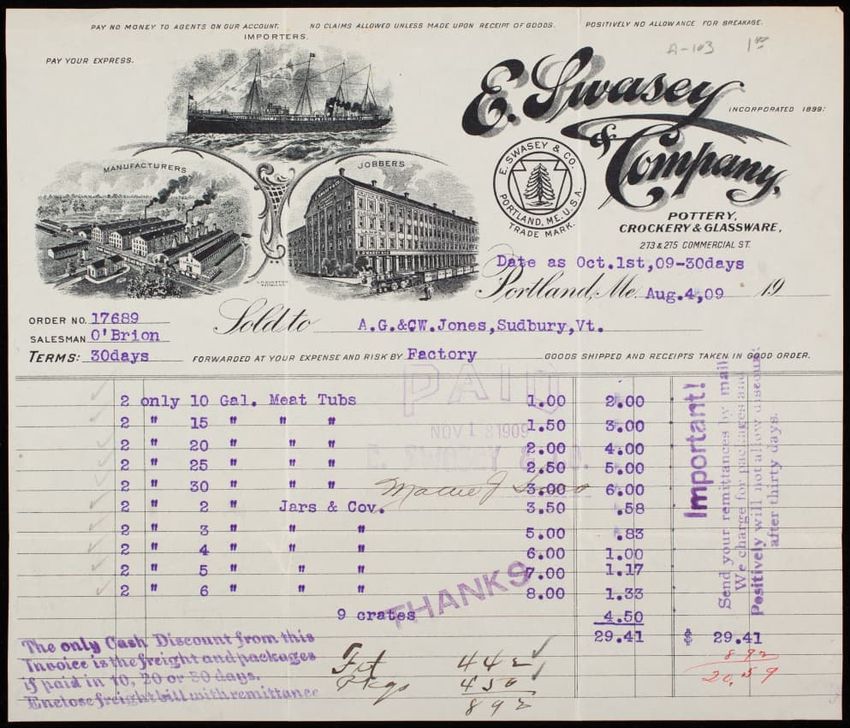 PAY NO MONEY TO AGENTS ON OUR ACCOUNT. NO CLAIMS ALLOWED UNLESS MADE UPON RECEIPT OF GOODS. POSITIVELY NO ALLOWANCE FOR BREAKAGE.
IMPORTERS.
A-103 1
PAY YOUR EXPRESS.
E. Swasey
INCORPORATED 1899:
& Company,
MANUFACTURERS
JOBBERS
E. SWASEY & CO.
PORTLAND, ME. U.S.A.
TRADE MARK.
POTTERY,
CROCKERY & GLASSWARE,
273 & 275 COMMERCIAL ST.
Date as Oct.1st,09-30days
Portland, Me. Aug.4,09 19
ORDER NO. 17689
Sold to A.G.&CW.Jones,Sudbury,Vt.
SALESMAN O'Brion
TERMS: 30days FORWARDED AT YOUR EXPENSE AND RISK BY Factory GOODS SHIPPED AND RECEIPTS TAKEN IN GOOD ORDER.
2 only 10 Gal. Meat Tubs 1.00 2.00
2 " 15 " " " 1.50 3.00
2 " 20 " " " 2.00 4.00
2 " 25 " " " 2.50 5.00
2 " 30 " " " 3.00 6.00
2 " 2 " Jars & Cov. 3.50 .58
2 " 3 " " " 5.00 .83
2 " 4 " " " 6.00 1.00
2 " 5 " " " 7.00 1.17
2 " 6 " " " 8.00 1.33
9 crates 4.50
29.41 $ 29.41
PAID
NOV 1 1909
E. SWASEY & CO.
THANKS
Important!
Send your remittances by mail
We charge for packages and
Positively will not allow discount
after thirty days.
The only Cash Discount from this
Invoice is the freight and packages
if paid in 10, 20 or 30 days.
Enclose freight bill with remittance
Frt 442
Pkgs 450
892
892
20.59